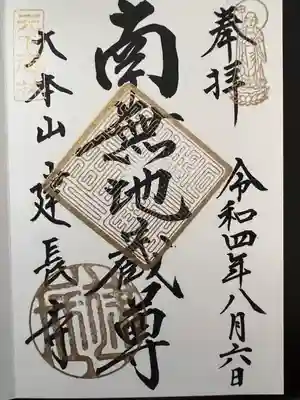 奉拝
令和四年八月六日
南無地蔵尊
大本山建長寺